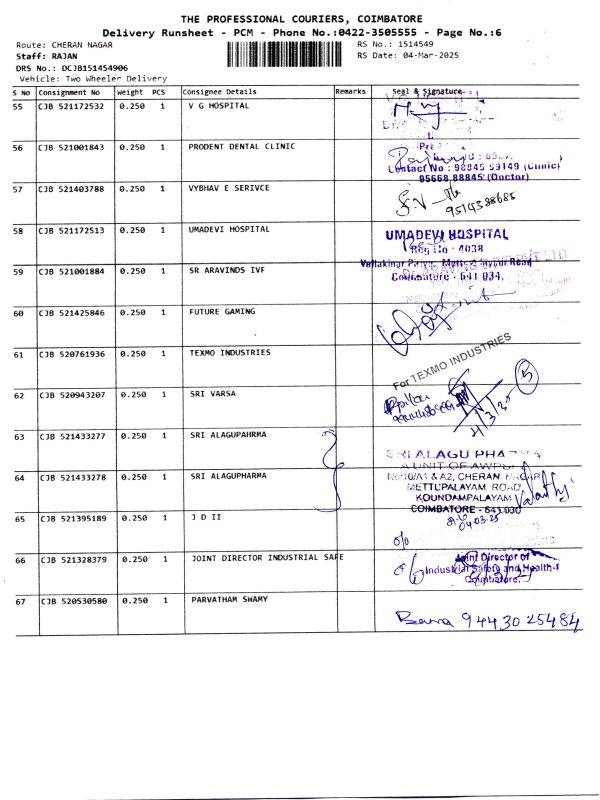 THE PROFESSIONAL COURIERS, COIMBATORE
Delivery Runsheet - PCM - Phone No.:0422-3505555 - Page No.:6
Route: CHERAN NAGAR RS No.: 1514549
Staff: RAJAN RS Date: 04-Mar-2025
DRS No.: DCJB151454906
Vehicle: Two Wheeler Delivery
S No Consignment No Weight PCS Consignee Details Remarks Seal & Signature
55 CJB 521172532 0.250 1 V G HOSPITAL
56 CJB 521001843 0.250 1 PRODENT DENTAL CLINIC
Contact No : 98845 99149 (Clinic)
95668 88845 (Doctor)
57 CJB 521403788 0.250 1 VYBHAV E SERIVCE
9514388685
58 CJB 521172513 0.250 1 UMADEVI HOSPITAL UMADEVI HOSPITAL
Reg No : 4038
59 CJB 521001884 0.250 1 SR ARAVINDS IVF
Coimbatore - 641 034.
60 CJB 521425846 0.250 1 FUTURE GAMING
61 CJB 520761936 0.250 1 TEXMO INDUSTRIES
For TEXMO INDUSTRIES
62 CJB 520943207 0.250 1 SRI VARSA
5
4/3/25
63 CJB 521433277 0.250 1 SRI ALAGUPAHRMA
SRI ALAGU PHARMA
A UNIT OF
64 CJB 521433278 0.250 1 SRI ALAGUPHARMA No:10/A1 & A2, CHERAN NAGAR
METTUPALAYAM ROAD
KOUNDAMPALAYAM
COIMBATORE - 641 030
65 CJB 521395189 0.250 1 J D II
04.03.25
66 CJB 521328379 0.250 1 JOINT DIRECTOR INDUSTRIAL SAFE
Joint Director of
Industrial Safety and Health-I
Coimbatore.
67 CJB 520530580 0.250 1 PARVATHAM SHAMY
9443025484